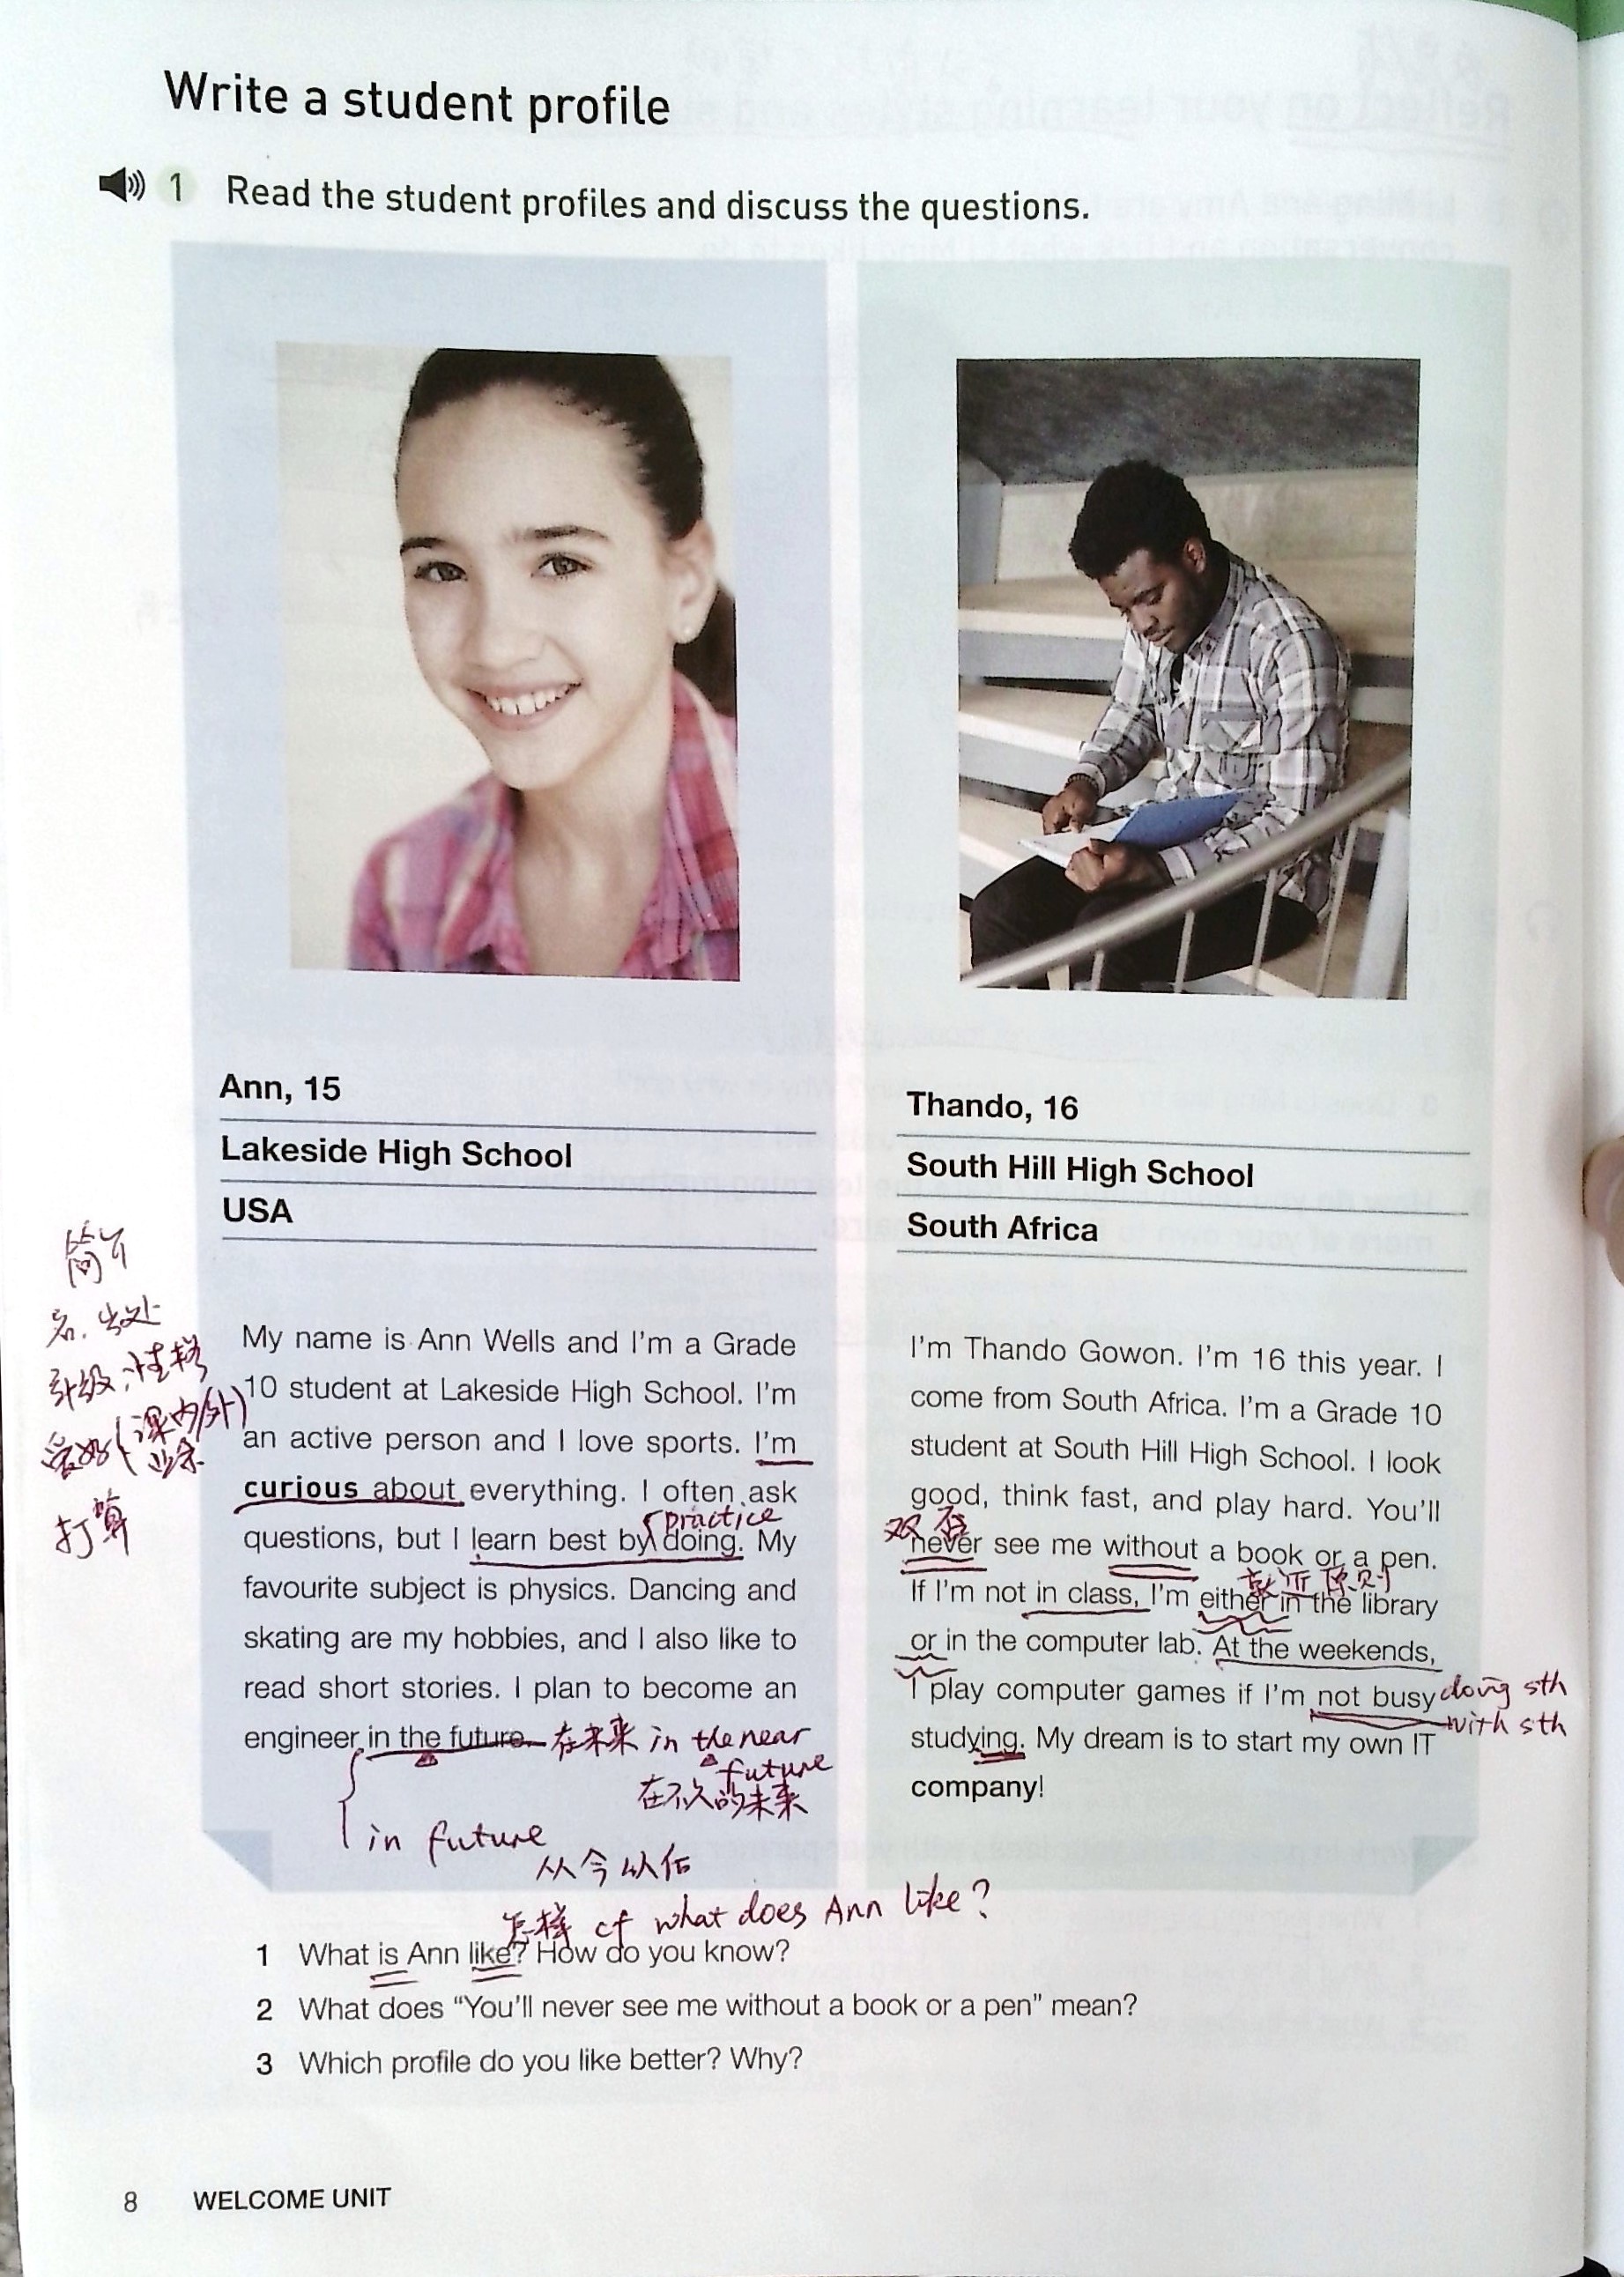 Write a student profile
1 Read the student profiles and discuss the questions.
Ann, 15
Lakeside High School
USA
简介
名.出处
年级,性格
爱好(课内/外)
业余
打算
My name is Ann Wells and I'm a Grade
10 student at Lakeside High School. I'm
an active person and I love sports. I'm
curious about everything. I often ask
practice
questions, but I learn best by doing. My
favourite subject is physics. Dancing and
skating are my hobbies, and I also like to
read short stories. I plan to become an
engineer in the future. 在未来 in the near
future
在不久的未来
in future
从今以后
Thando, 16
South Hill High School
South Africa
I'm Thando Gowon. I'm 16 this year. I
come from South Africa. I'm a Grade 10
student at South Hill High School. I look
good, think fast, and play hard. You'll
双否
never see me without a book or a pen.
就近原则
If I'm not in class, I'm either in the library
or in the computer lab. At the weekends,
I play computer games if I'm not busy doing sth
with sth
studying. My dream is to start my own IT
company!
怎样 cf what does Ann like?
1 What is Ann like? How do you know?
2 What does “You'll never see me without a book or a pen” mean?
3 Which profile do you like better? Why?
8 WELCOME UNIT